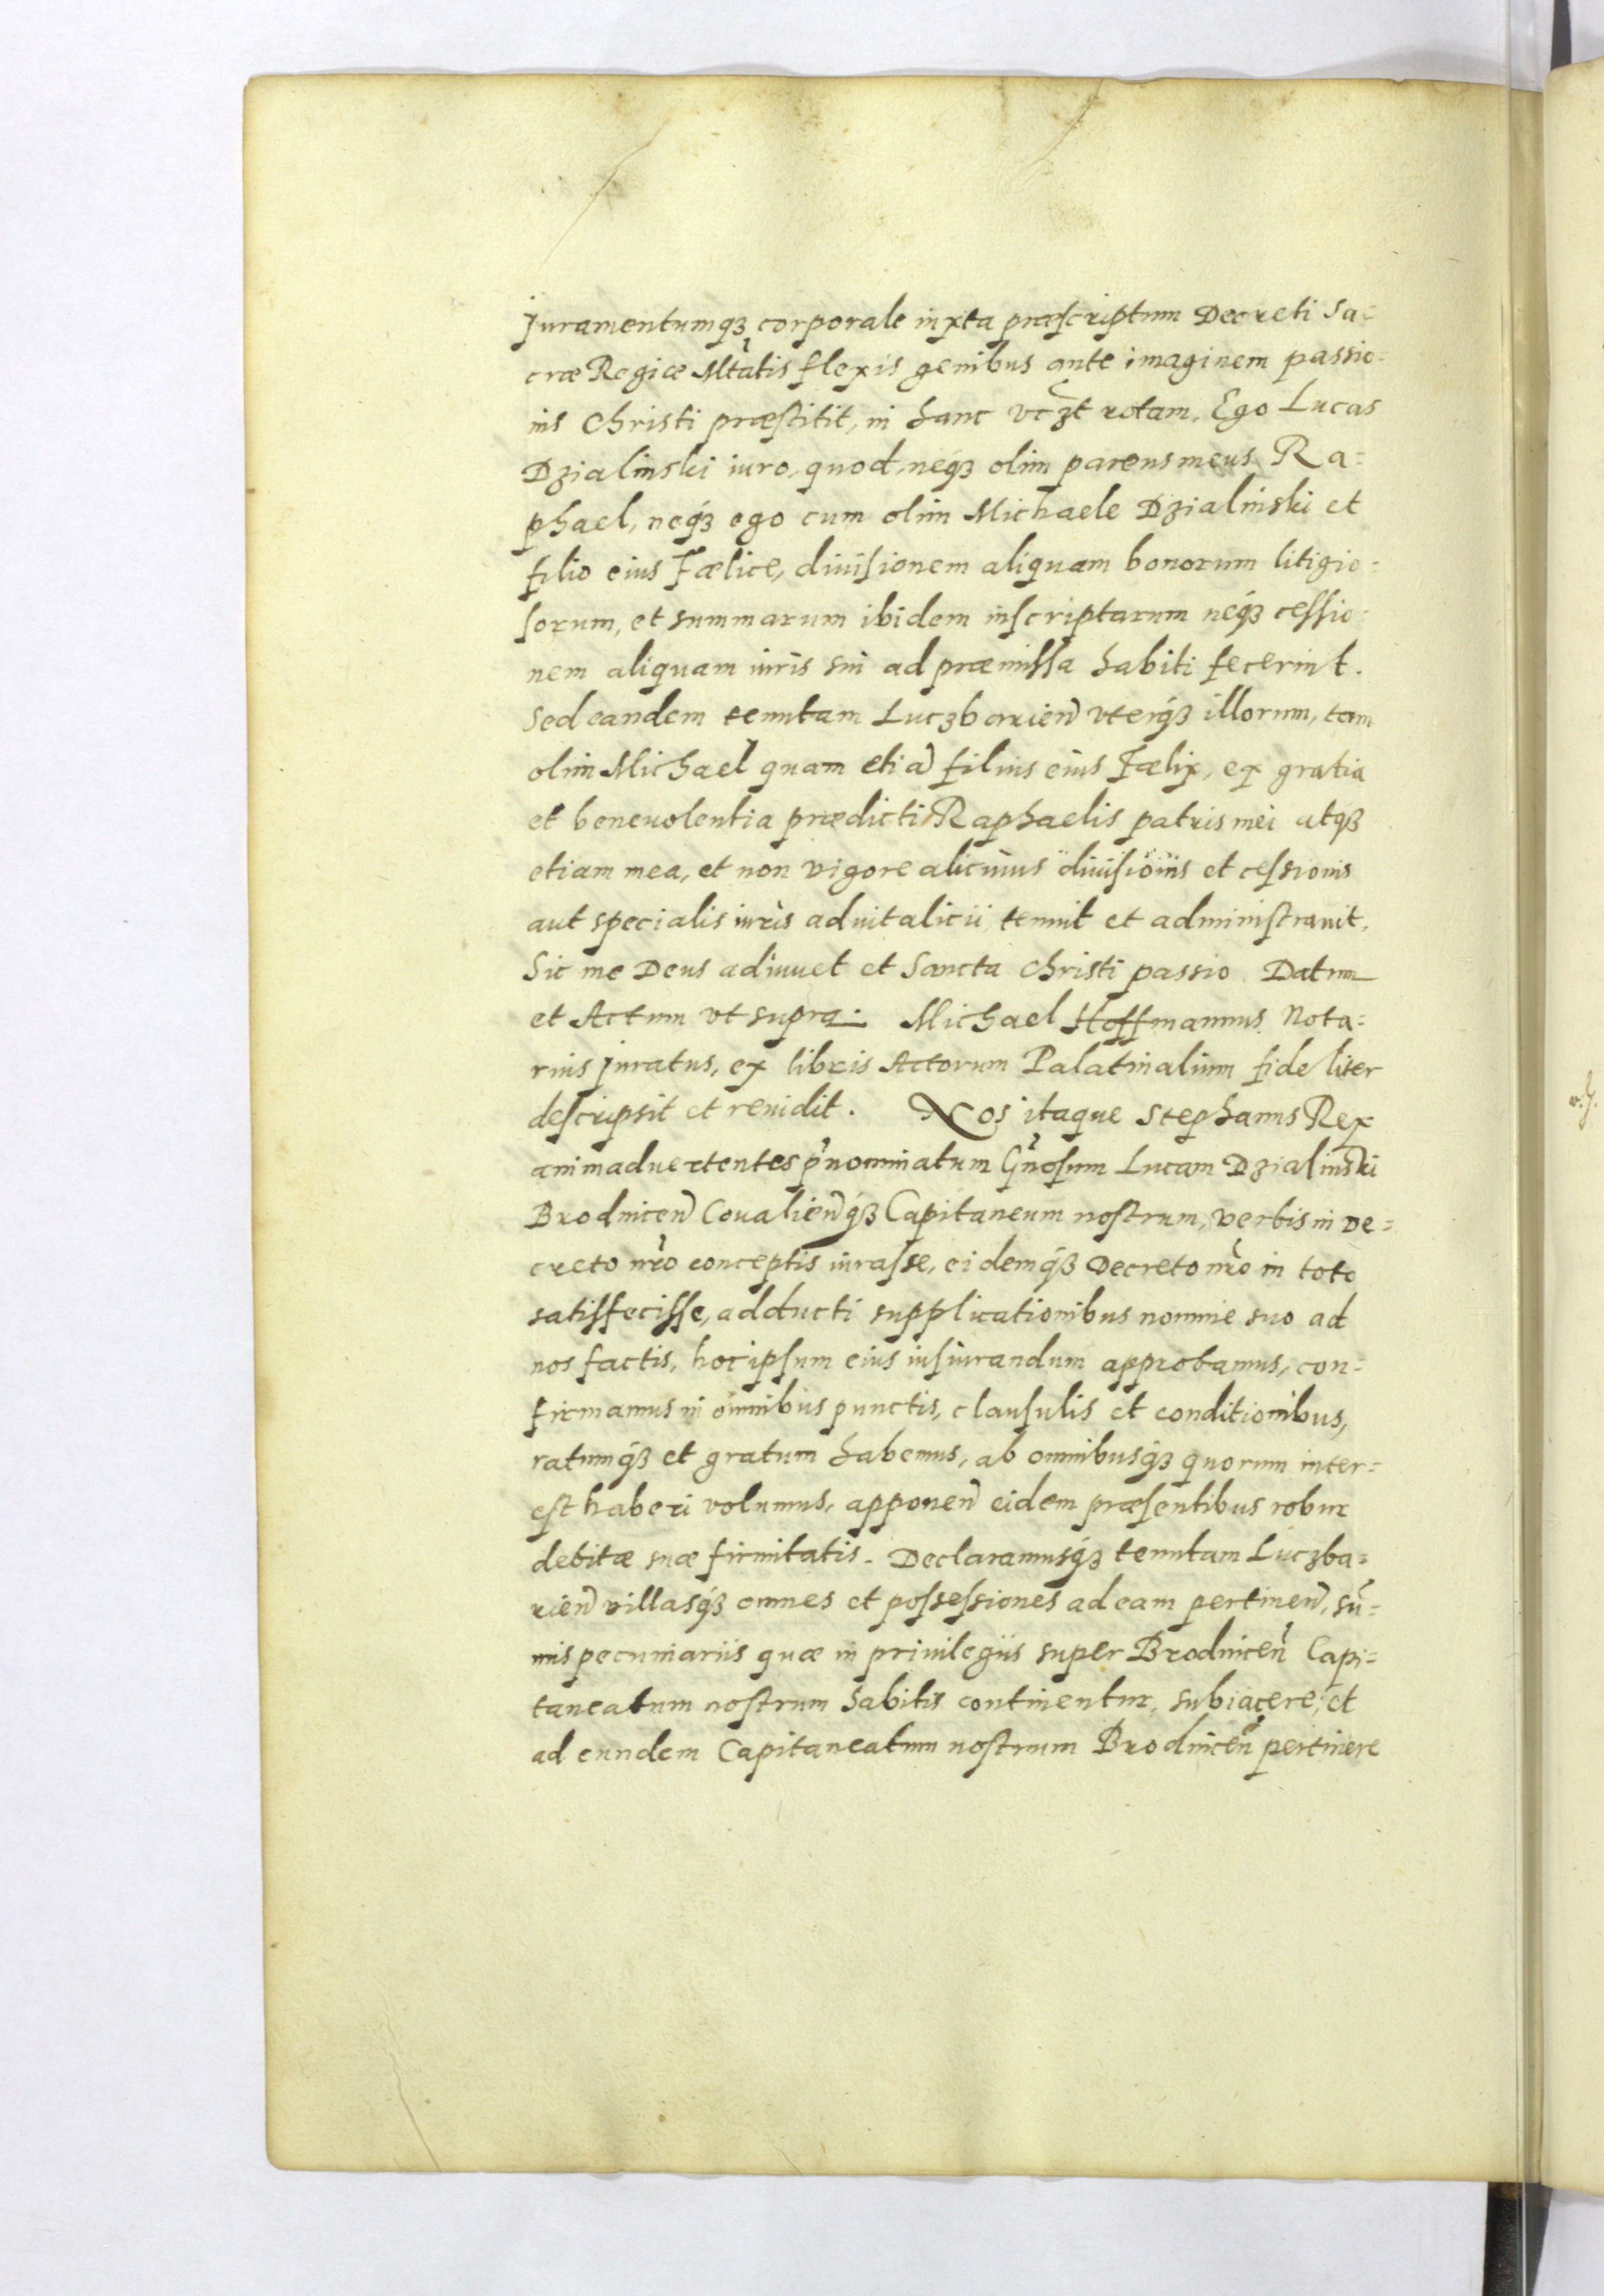 Juramentumqꝫ corporale iuxta præscriptum Decreti Sa=
cræ Regiæ Mtatis flexis genibus ante imaginem passio=
nis Christi præstitit, in hanc vcꝫt rotam, Ego Lucas
Dzialinski iuro, quod, neqꝫ olim parens meus Ra=
phael, neqꝫ ego cum olim Michaele Dzialinski et
filio eius Fælice, diuisionem aliquam bonorum litigio=
sorum, et summarum ibidem inscriptarum neqꝫ cessio=
nem aliquam iuris sui ad præmissa habiti fecerint.
Sed eandem tenutam Luczbarien̄ vterqꝫ illorum, tam
olim Michael quam etiā filius eius Fælix, ex gratia
et beneuolentia prædicti Raphaelis patris mei atqꝫ
etiam mea, et non vigore alicuius diuisionis et cessionis
aut specialis iuris aduitalicii, tenuit et administrauit.
Sic me Deus adiuuet et Sancta Christi passio. Datum
et Actum vt supra. Michael Hoffmannus Nota=
rius Juratus, ex libris Actorum Palatinalium fideliter
descripsit et reuidit. Nos itaque Stephanus Rex
animaduertentes p̃nominatum Gñosum Lucam Dzialinski
Brodnicen̄ Coualien̄qꝫ Capitaneum nostrum, verbis in De=
creto nr̃o conceptis iurasse, eidemqꝫ Decreto nr̃o in toto
satisfecisse, adducti supplicationibus nomine suo ad
nos factis, hoc ipsum eius iusiurandum approbamus, con=
firmamus in omnibus punctis, clausulis et conditionibus,
ratumqꝫ et gratum habemus, ab omnibusqꝫ quorum inter=
est haberi volumus, apponen̄ eidem præsentibus robur
debitæ suæ firmitatis. Declaramusqꝫ tenutam Luczba=
rien̄ villasqꝫ omnes et possessiones ad eam pertinen̄, sũ=
mis pecuniariis quæ in priuilegiis super Brodnicen̄ Capi=
taneatum nostrum habitis continentur, subiacere, et
ad eundem Capitaneatum nostrum Brodnicen̄ pertinere